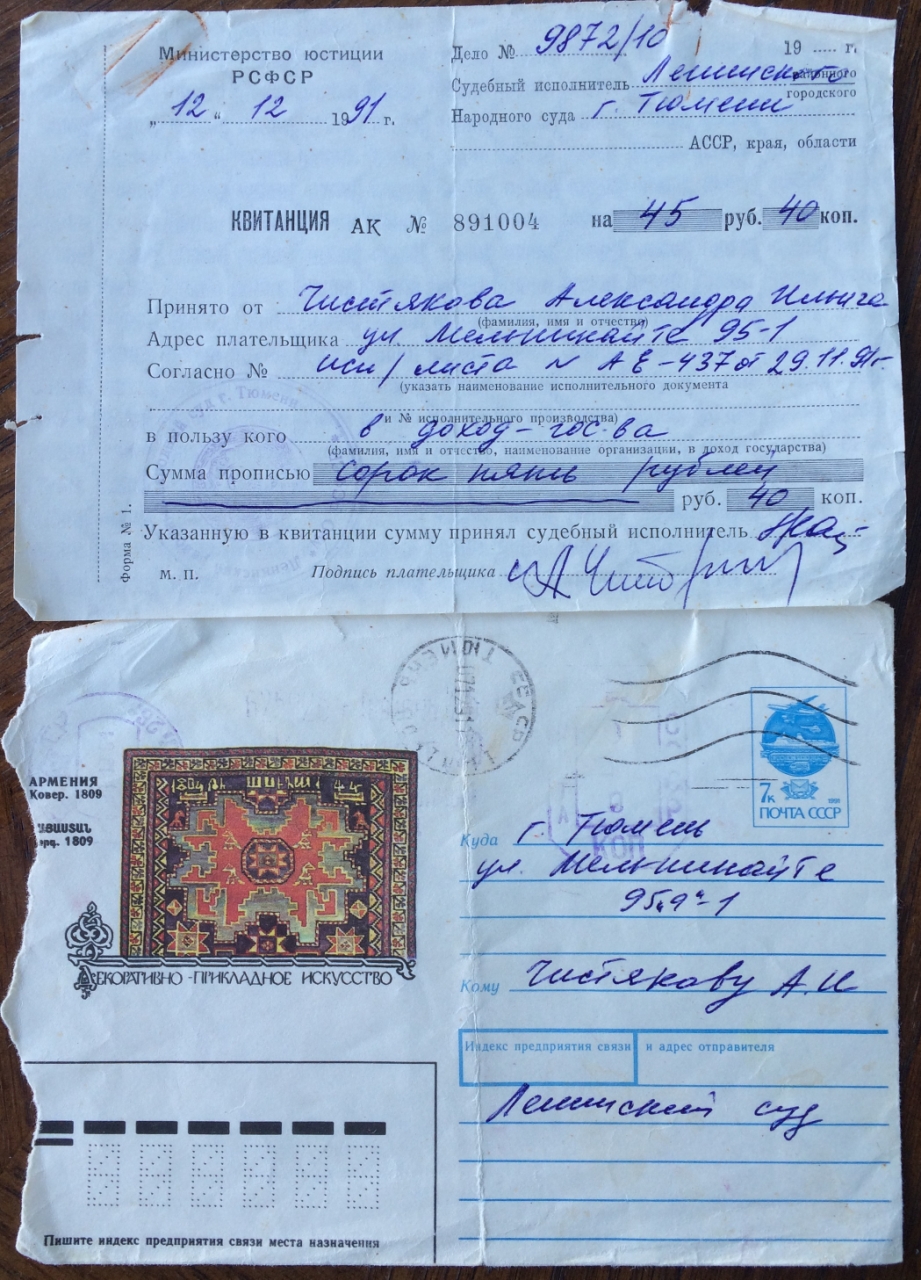 Министерство юстиции
РСФСР
„ 12 “ 12 1991 г.
Дело № 9872/10 19 г.
Судебный исполнитель Ленинского районного
городского
Народного суда г. Тюмени
АССР, края, области
КВИТАНЦИЯ АК № 891004 на 45 руб. 40 коп.
Принято от Чистякова Александра Ильича
(фамилия, имя и отчество)
Адрес плательщика ул Мельникайте 95-1
Согласно № исп/листа N АЕ-437 от 29.11.91г.
(указать наименование исполнительного документа
и № исполнительного производства)
в пользу кого в доход гос-ва
(фамилия, имя и отчество, наименование организации, в доход государства)
Сумма прописью сорок пять рублей
руб. 40 коп.
Указанную в квитанции сумму принял судебный исполнитель
Форма № 1.
м. п. Подпись плательщика
ТЮМЕНЬ
АРМЕНИЯ
Ковер. 1809
1809
ДЕКОРАТИВНО-ПРИКЛАДНОЕ ИСКУССТВО
7к
ПОЧТА СССР
КОП
Куда г. Тюмень
ул. Мельникайте
95„а“-1
Кому Чистякову А.И
Индекс предприятия связи и адрес отправителя
Ленинский суд
Пишите индекс предприятия связи места назначения